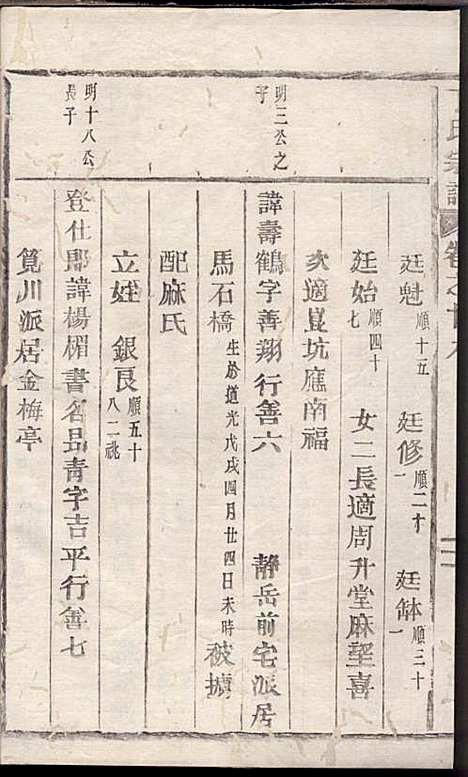 氏宗譜 卷之廿九
廷魁 順十五 廷修 順二十一 廷缽 順三十一
廷始 順四十七 女二長適周升堂麻望喜
次適崑坑應南福
明三公之子
諱壽鶴字善翔行善六 靜岳前宅派居
馬石橋 生於道光戊戌四月廿四日未時 被擄
配麻氏
立姪 銀良 順五十八二祧
明十八公長子
登仕郎諱楊楣書名品青字吉平行善七
筧川派居金梅亭